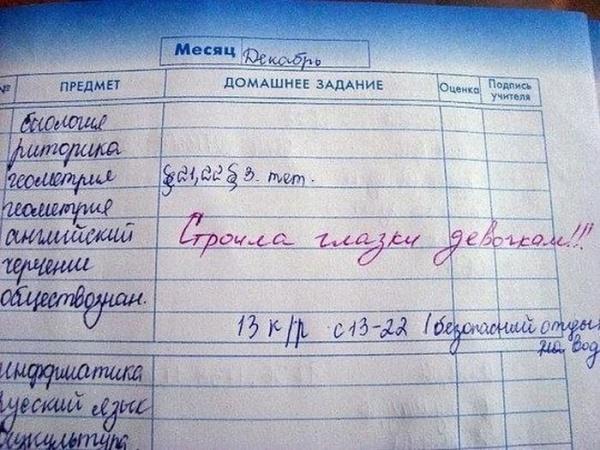 Месяц Декабрь
№ ПРЕДМЕТ ДОМАШНЕЕ ЗАДАНИЕ Оценка Подпись учителя
биология
риторика
геометрия §21,22 § 3. тет.
геометрия
английский Строила глазки девочкам!!!
черчение
обществознан.
13 к/р с13-22 (безопасний отды
на вод
информатика
русский язык